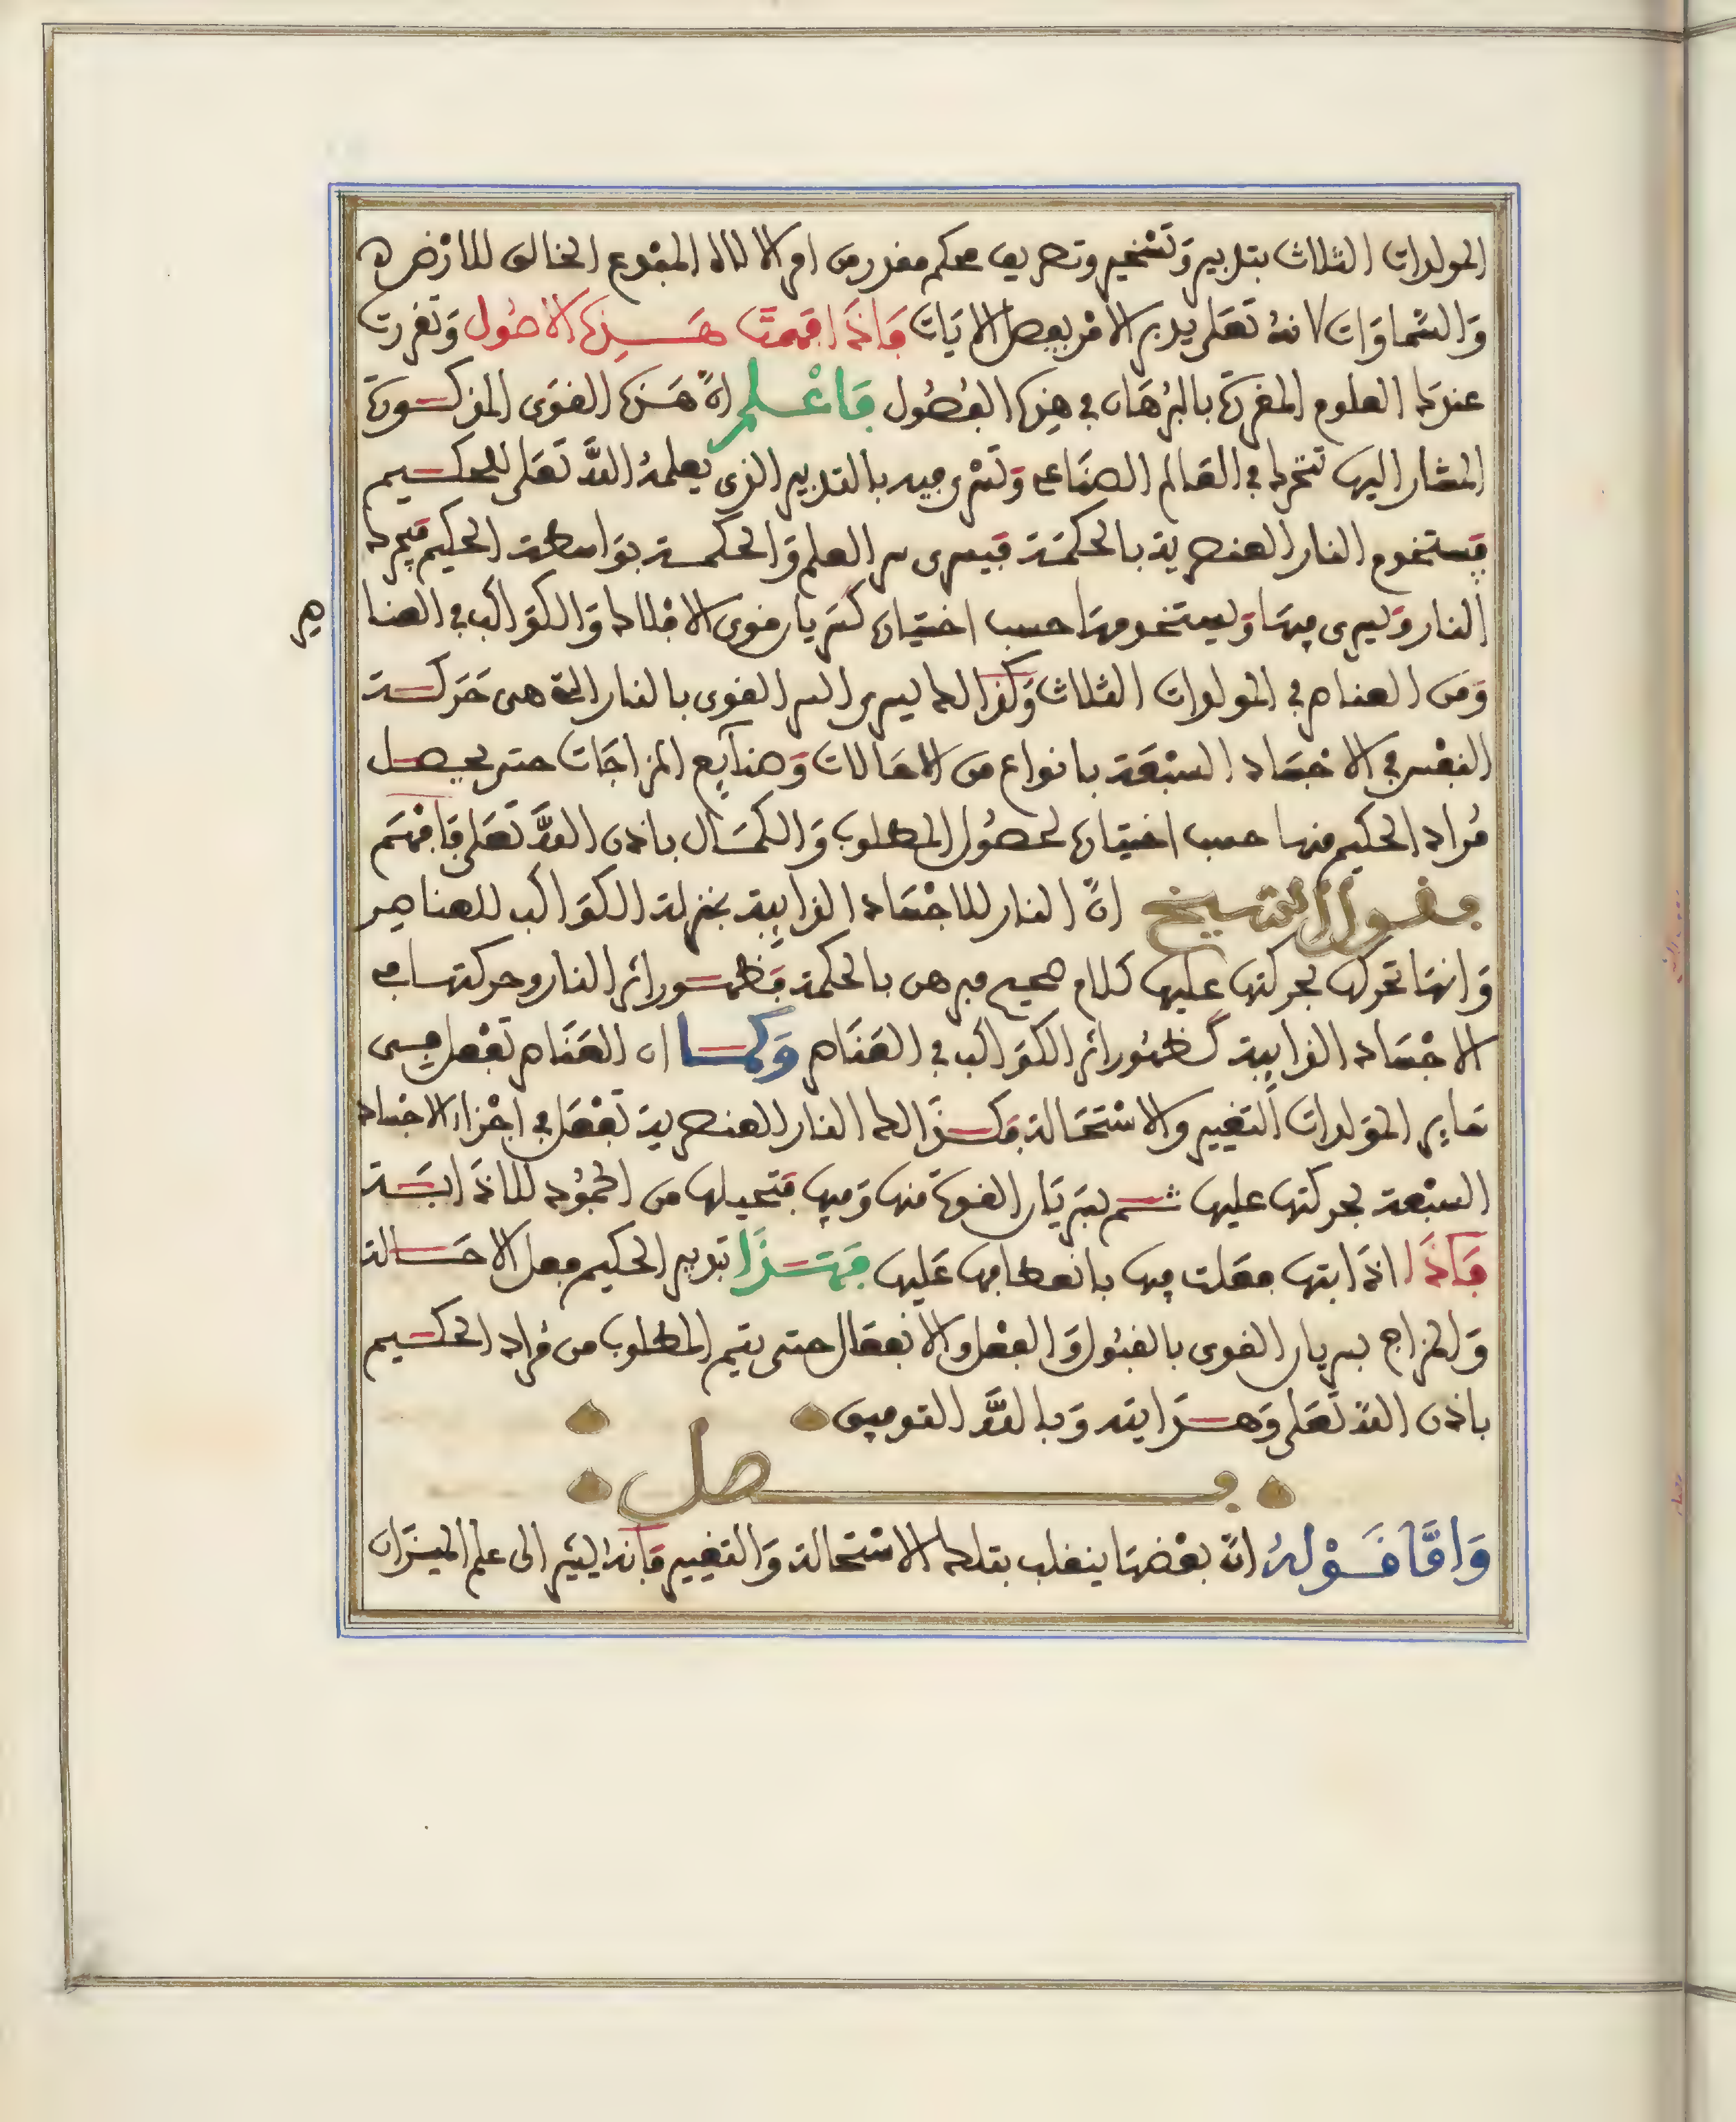 المولدات الثلاث بتدبير وَتَسْخير وتصريف محكم مقدر من امر الالاه المبْدع الخالق للارْض
وَالسَّماوَات لانهُ تعَلى يدبر الامْر يفصل الايَات فَاذَا فهمتَ هَــذِه الاصُول وَتقررت
عندك العلوم المقررَة بالبُرْهَان في هذِه الفُصُول فَاعْــلم انَّ هَـذه القوَى المذكــورة
المشار اليها تتحرك في العَالم الصنَاعي وَتسْري فيه بالتدبير الذي يعلمهُ اللهُ تعَلى للحكــيم
فيَستخدم النار العنصرية بالحكمَة فيسرى سر العلم وَالحكمــة بوَاسطة الحكيم فيحرك
النار وَيسرى فيهَا وَيستخدمهَا حسب اختيَاره كسَريان قوى الافلاك وَالكوَاكب في العنا
صر
وَمن العناصر في المولدات الثلاث وَكذَالك يسرى السر القوى بالنار التي هى حَركــة
النفْس في الاجْسَاد السبْعَة بانواع من الاحَالات وَصنآيع المزاجَات حتى يحصــل
مُراد الحكيم منها حسب اختيَاره لحصُول المطلوب وَالكمَـال باذن اللهِ تعَلى فَافهَم
فقــول الشيخ انَّ النار للاجْسَاد الذايبة بمنزلة الكوَاكب للعناصر
وَانهَا تحرك بحركتها عليها كلام صحيح مبرهن بالحكمة فَظهــور اثر النار وحركتها في
الاجْسَاد الذايبة كظهُور اثر الكوَاكب في العنَاصر وَكمــا ان العنَاصر تفْعل في
سَاير الموَلدات التغيير والاسْتحَالة فكــذَالك النار العنصرية تفْعَل في اجْزاء الاجْسَاد
السبْعة بحركتها عليها ثــم بسَريَان القوة منها وَفيها فتحيلها من الجمُود للاذَابَــة
فَاذَا اذَابتها فعَلت فيها بانعطافها عَليها فهَــذَا تدبير الحكيم فعل الاحَــالة
وَالمزاج بسريان القوى بالقبُول وَالفِعْل وَالانفعَال حتى يتم المطلوب من مُراد الحكــيم
باذن اللهِ تعَلى وَهــدَايته وَباللهِ التوفيق
فــــصل
وَامَّا قَــوْلهُ انَّ بعْضهَا ينقلب بتلك الاسْتحالة وَالتغيير فَانه يشير الى علم الميــزَان